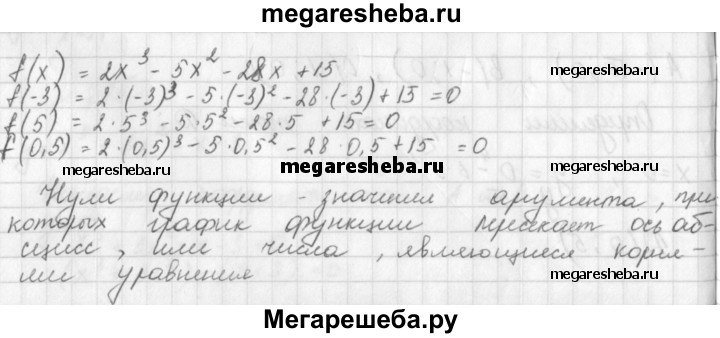 megaresheba.ru
f(x) = 2x³ - 5x² - 28x + 15
megaresheba.ru
f(-3) = 2·(-3)³ - 5·(-3)² - 28·(-3) + 15 = 0
f(5) = 2·5³ - 5·5² - 28·5 + 15 = 0
f(0,5) = 2·(0,5)³ - 5·0,5² - 28·0,5 + 15 = 0
megaresheba.ru
megaresheba.ru
Нули функции - значения аргумента, при
которых график функции пересекает ось аб-
сцисс, или числа, являющиеся корня-
ми уравнения
megaresheba.ru
Мегарешеба.ру